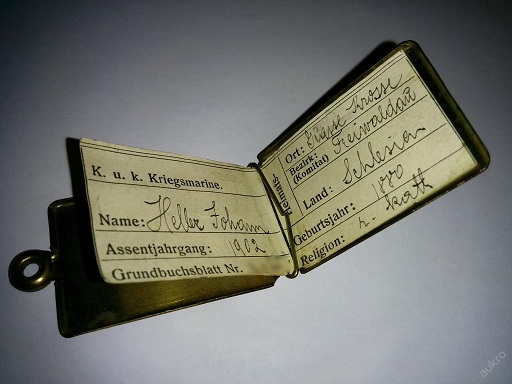 K. u. k. Kriegsmarine.
Name: Heller Johann
Assentjahrgang: 1902
Grundbuchsblatt Nr.
Heimats-
Ort: Krosse
Bezirk: (Komitat) Freiwaldau
Land: Schlesien
Geburtsjahr: 1880
Religion: r. kath
aukro